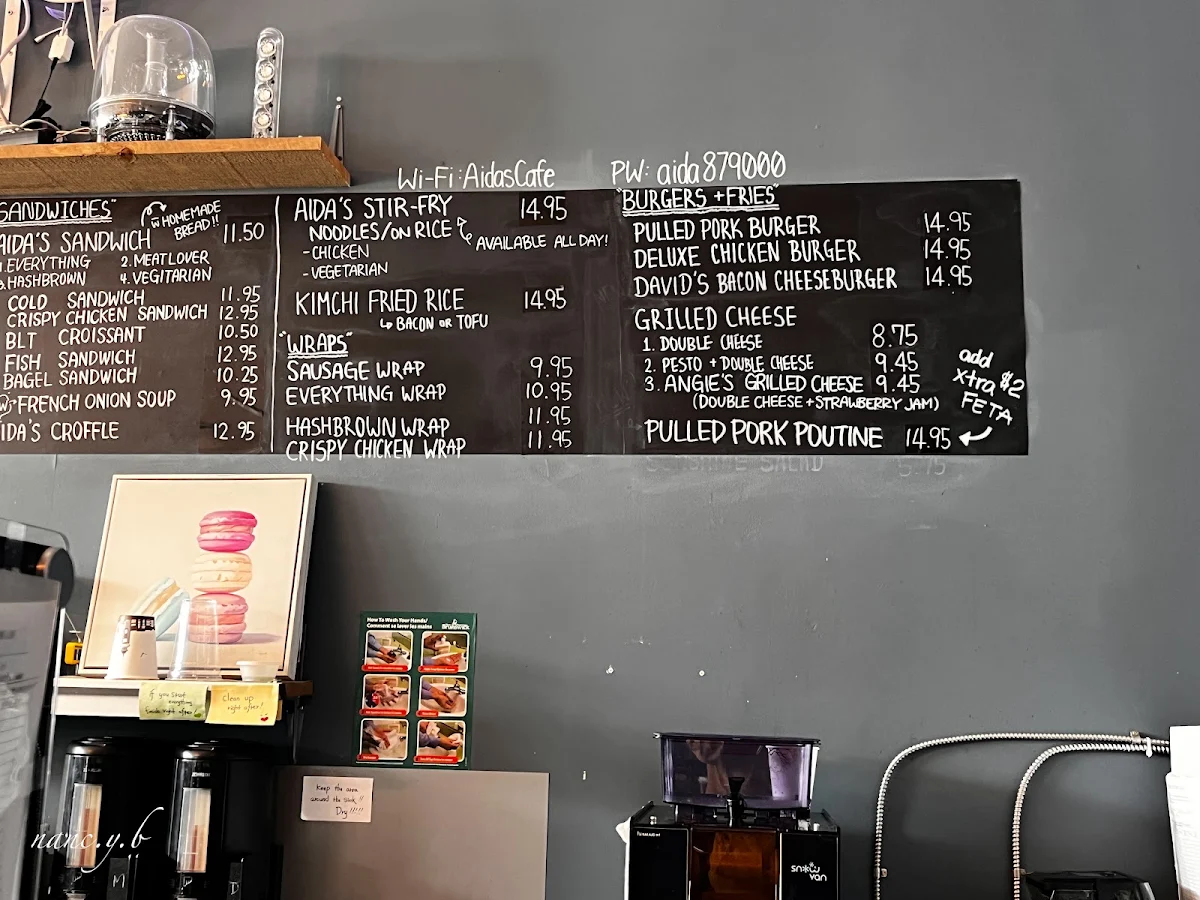 Wi-Fi: AidasCafe PW: aida879000
SANDWICHES"
W HOMEMADE
BREAD!!
AIDA'S SANDWICH 11.50
1.EVERYTHING 2.MEATLOVER
3.HASHBROWN 4.VEGITARIAN
COLD SANDWICH 11.95
CRISPY CHICKEN SANDWICH 12.95
BLT CROISSANT 10.50
FISH SANDWICH 12.95
BAGEL SANDWICH 10.25
W/ FRENCH ONION SOUP 9.95
AIDA'S CROFFLE 12.95
AIDA'S STIR-FRY 14.95
NOODLES/ON RICE
AVAILABLE ALL DAY!
-CHICKEN
-VEGETARIAN
KIMCHI FRIED RICE 14.95
BACON OR TOFU
"WRAPS"
SAUSAGE WRAP 9.95
EVERYTHING WRAP 10.95
HASHBROWN WRAP 11.95
CRISPY CHICKEN WRAP 11.95
"BURGERS + FRIES"
PULLED PORK BURGER 14.95
DELUXE CHICKEN BURGER 14.95
DAVID'S BACON CHEESEBURGER 14.95
GRILLED CHEESE
1. DOUBLE CHEESE 8.75
2. PESTO + DOUBLE CHEESE 9.45
3. ANGIE'S GRILLED CHEESE 9.45
(DOUBLE CHEESE + STRAWBERRY JAM)
add
xtra $2
FETA
PULLED PORK POUTINE 14.95
SALAD 5.75
How To Wash Your Hands/
Comment se laver les mains
Brunswick
If you start
everything
finish right after!
Clean up
right after!
Keep the area
around the sink!!
Dry!!!!
M
D
snow
van
nanc.y.b